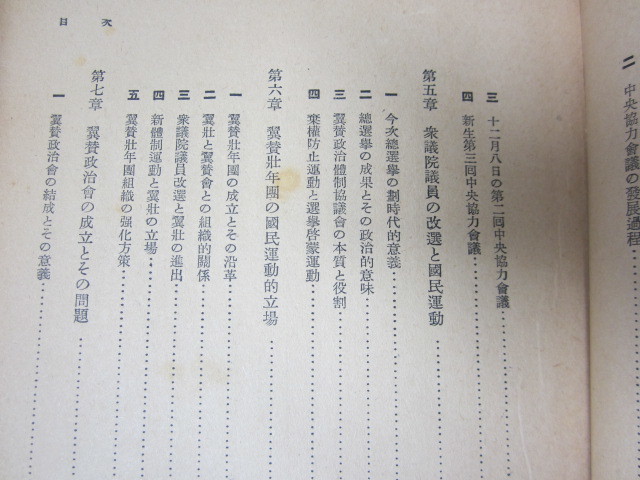 二 中央協力會議の發展過程
三 十二月八日の第二囘中央協力會議
四 新生第三囘中央協力會議
第五章 衆議院議員の改選と國民運動
一 今次總選擧の劃時代的意義
二 總選擧の成果とその政治的意味
三 翼賛政治體制協議會の本質と役割
四 棄權防止運動と選擧啓蒙運動
第六章 翼賛壯年團の國民運動的立場
一 翼賛壯年團の成立とその沿革
二 翼壯と翼賛會との組織的關係
三 衆議院議員改選と翼壯の進出
四 新體制運動と翼壯の立場
五 翼賛壯年團組織の强化方策
第七章 翼賛政治會の成立とその問題
一 翼賛政治會の結成とその意義
目次